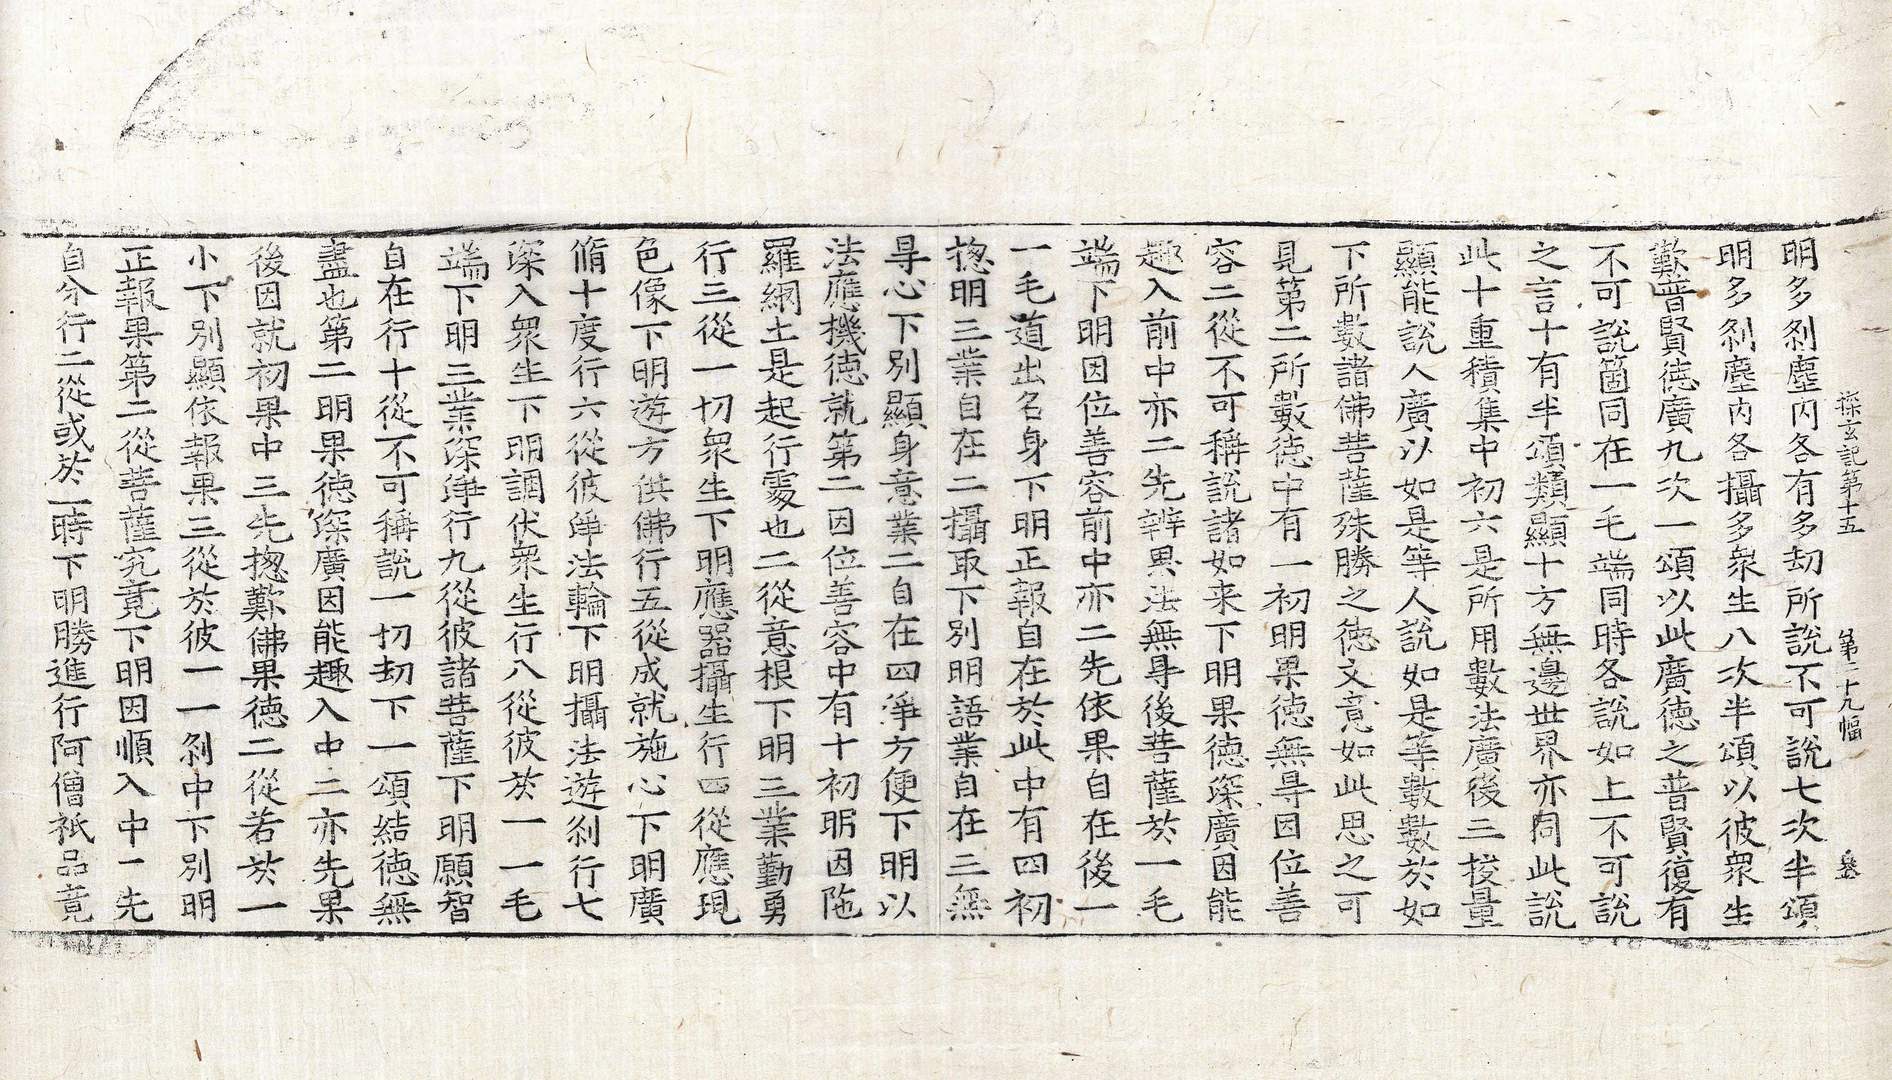 探玄記第十五 第二十九幅
明多刹塵內各有多劫所說不可說七次半頌
明多刹塵內各攝多衆生八次半頌以彼衆生
歎普賢德廣九次一頌以此廣德之普賢復有
不可說箇同在一毛端同時各說如上不可說
之言十有半頌類顯十方無邊世界亦同此說
此十重積集中初六是所用數法廣後三挍量
顯能說人廣以如是等人說如是等數數於如
下所數諸佛菩薩殊勝之德文意如此思之可
見第二所數德中有一初明果德無㝵因位善
容二從不可稱說諸如來下明果德深廣因能
趣入前中亦二先辨果法無㝵後菩薩於一毛
端下明因位善容前中亦二先依果自在後一
一毛道出名身下明正報自在於此中有四初
揔明三業自在二攝取下別明語業自在三無
㝵心下別顯身意業二自在四淨方便下明以
法應機德就第二因位善容中有十初明因陁
羅網土是起行處也二從意根下明三業勤勇
行三從一切衆生下明應器攝生行四從應現
色像下明遊方供佛行五從成就施心下明廣
脩十度行六從彼淨法輪下明攝法遊刹行七
深入衆生下明調伏衆生行八從彼於一一毛
端下明三業深淨行九從彼諸菩薩下明願智
自在行十從不可稱說一切劫下一頌結德無
盡也第二明果德深廣因能趣入中二亦先果
後因就初果中三先揔歎佛果德二從若於一
小下別顯依報果三從於彼一一刹中下別明
正報果第二從菩薩究竟下明因順入中一先
自分行二從或於一時下明勝進行阿僧祇品竟